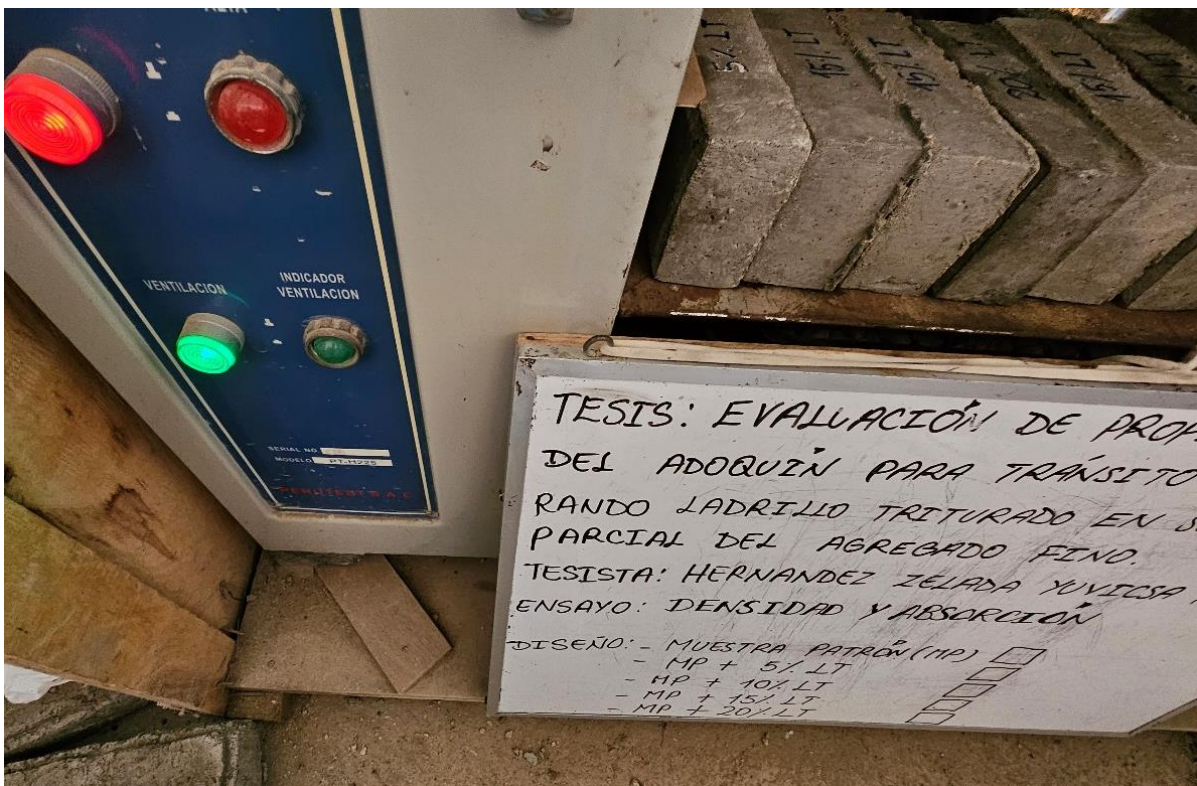 ALTA
VENTILACION
INDICADOR
VENTILACION
SERIAL NO
MODELO PT-H225
PERUTEST S.A.C
5% LT
15% LT
15% LT
20% LT
15% LT
TESIS: EVALUACIÓN DE PROP
DEL ADOQUIN PARA TRÁNSITO
RANDO LADRILLO TRITURADO EN S
PARCIAL DEL AGREGADO FINO.
TESISTA: HERNANDEZ ZELADA YUVICSA
ENSAYO: DENSIDAD Y ABSORCIÓN
DISEÑO: - MUESTRA PATRÓN (MP)
- MP + 5% LT
- MP + 10% LT
- MP + 15% LT
- MP + 20% LT